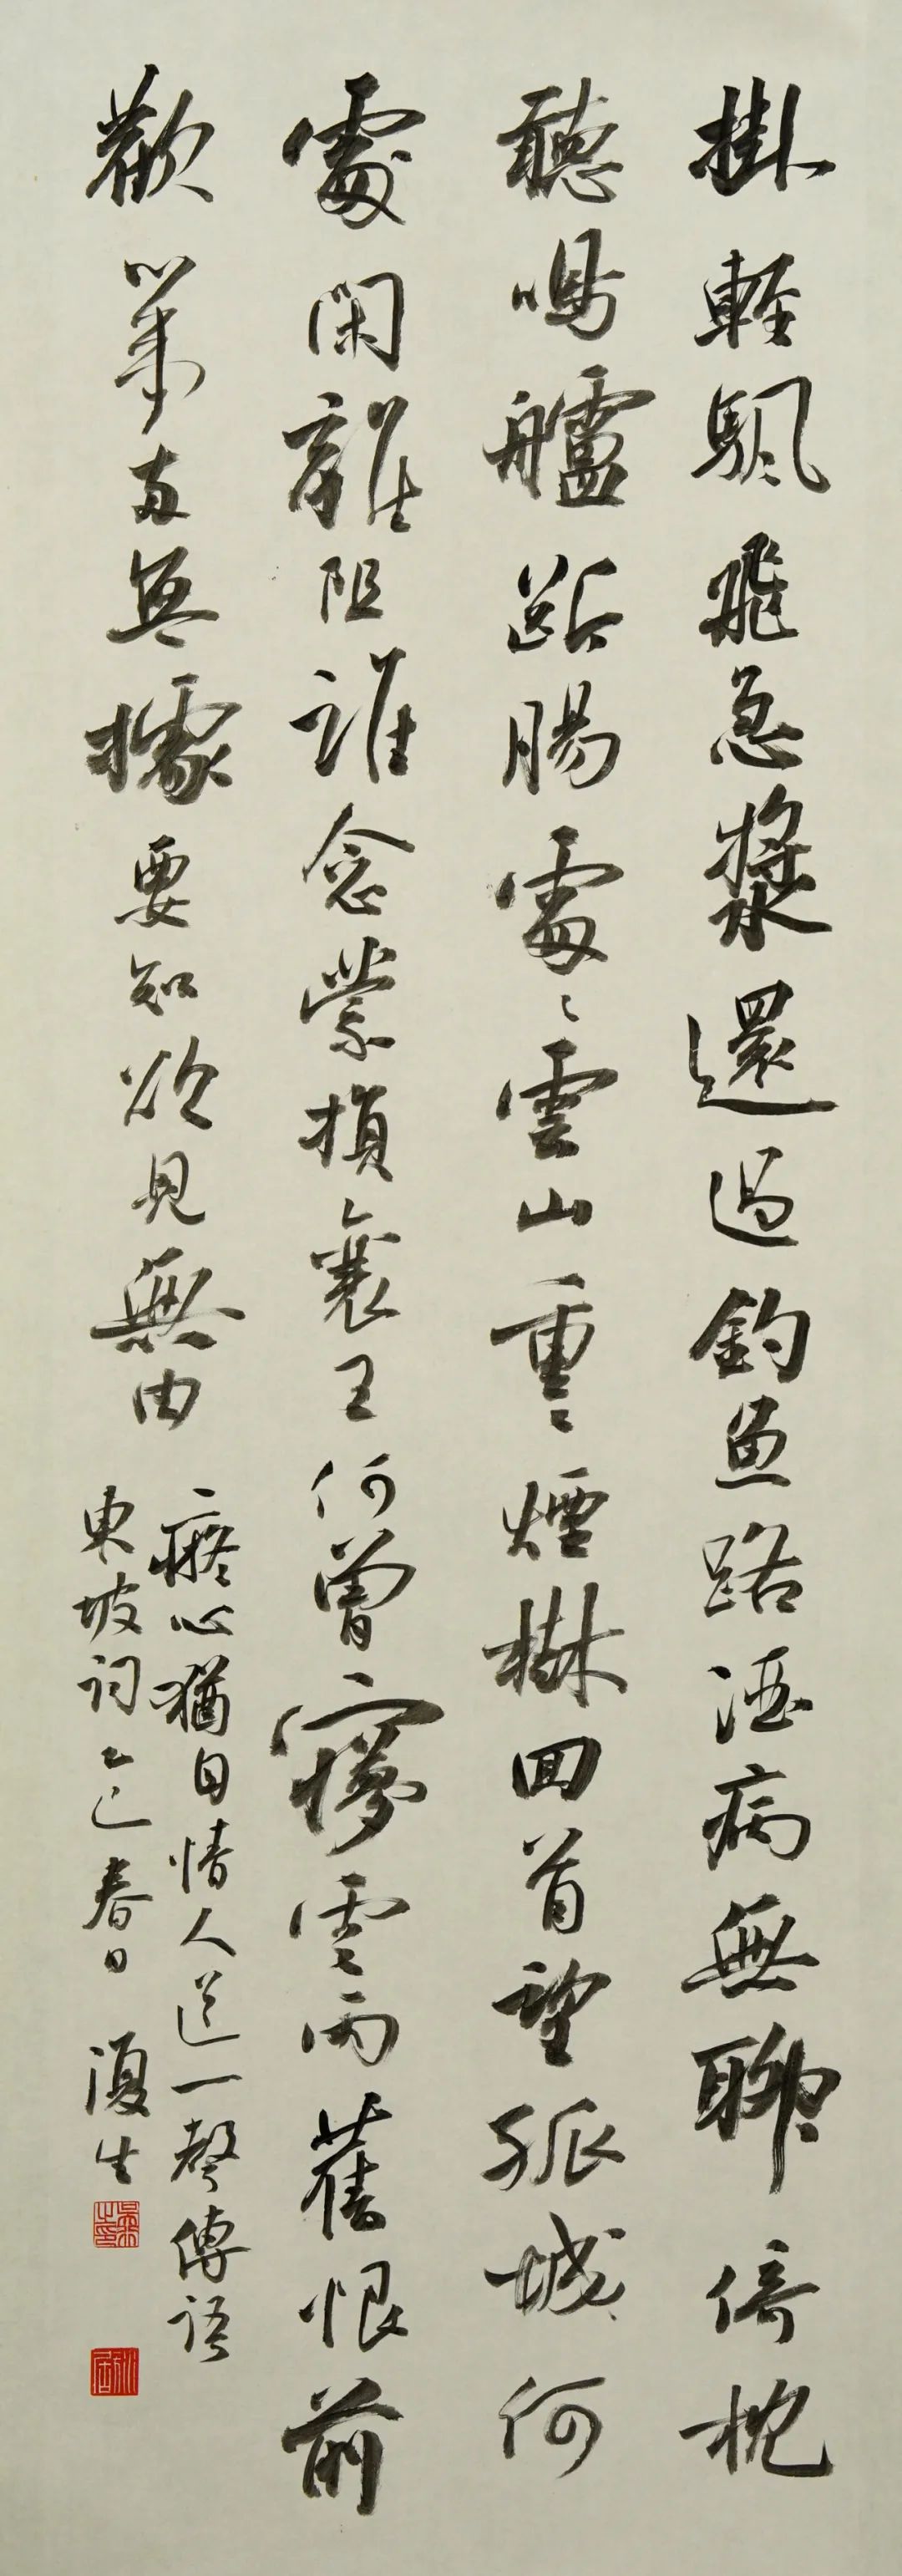 掛輕颿飛急槳還過釣魚路酒病無聊倚枕
聽鳴艫斷腸處〻雲山重〻煙樹回首望孤城何
處閑離阻誰念縈損襄王何曾夢雲雨舊恨前
歡心事兩無據要知欲見無由
癡心猶自情人道一聲傳語
東坡詞乙巳春日 復生